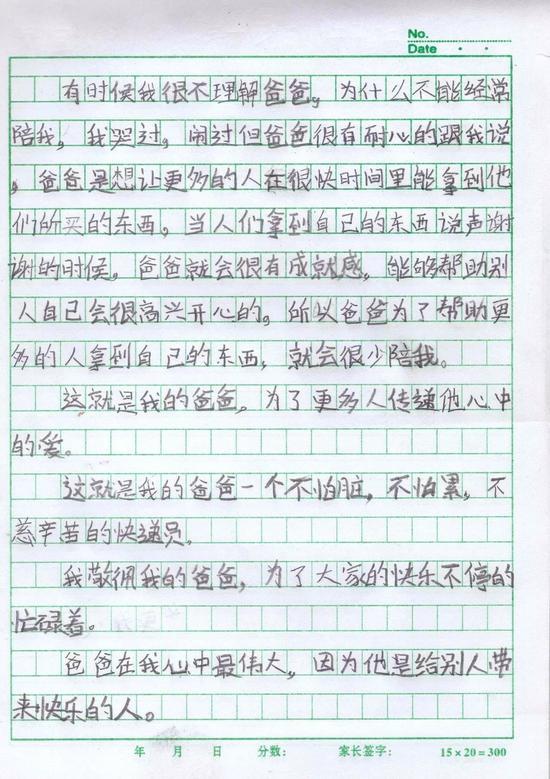 No.
Date . .
有时候我很不理解爸爸,为什么不能经常
陪我,我哭过,闹过但爸爸很有耐心的跟我说
,爸爸是想让更多的人在很快时间里能拿到他
们所买的东西,当人们拿到自己的东西说声谢
谢的时候,爸爸就会很有成就感,能够帮助别
人自己会很高兴开心的,所以爸爸为了帮助更
多的人拿到自己的东西,就会很少陪我。
这就是我的爸爸,为了更多人传递他心中
的爱。
这就是我的爸爸一个不怕脏,不怕累,不
辛苦的快递员。
我敬佣我的爸爸,为了大家的快乐不停的
忙碌着。
爸爸在我心中最伟大,因为他是给别人带
来快乐的人。
年 月 日 分数: 家长签字: 15×20=300